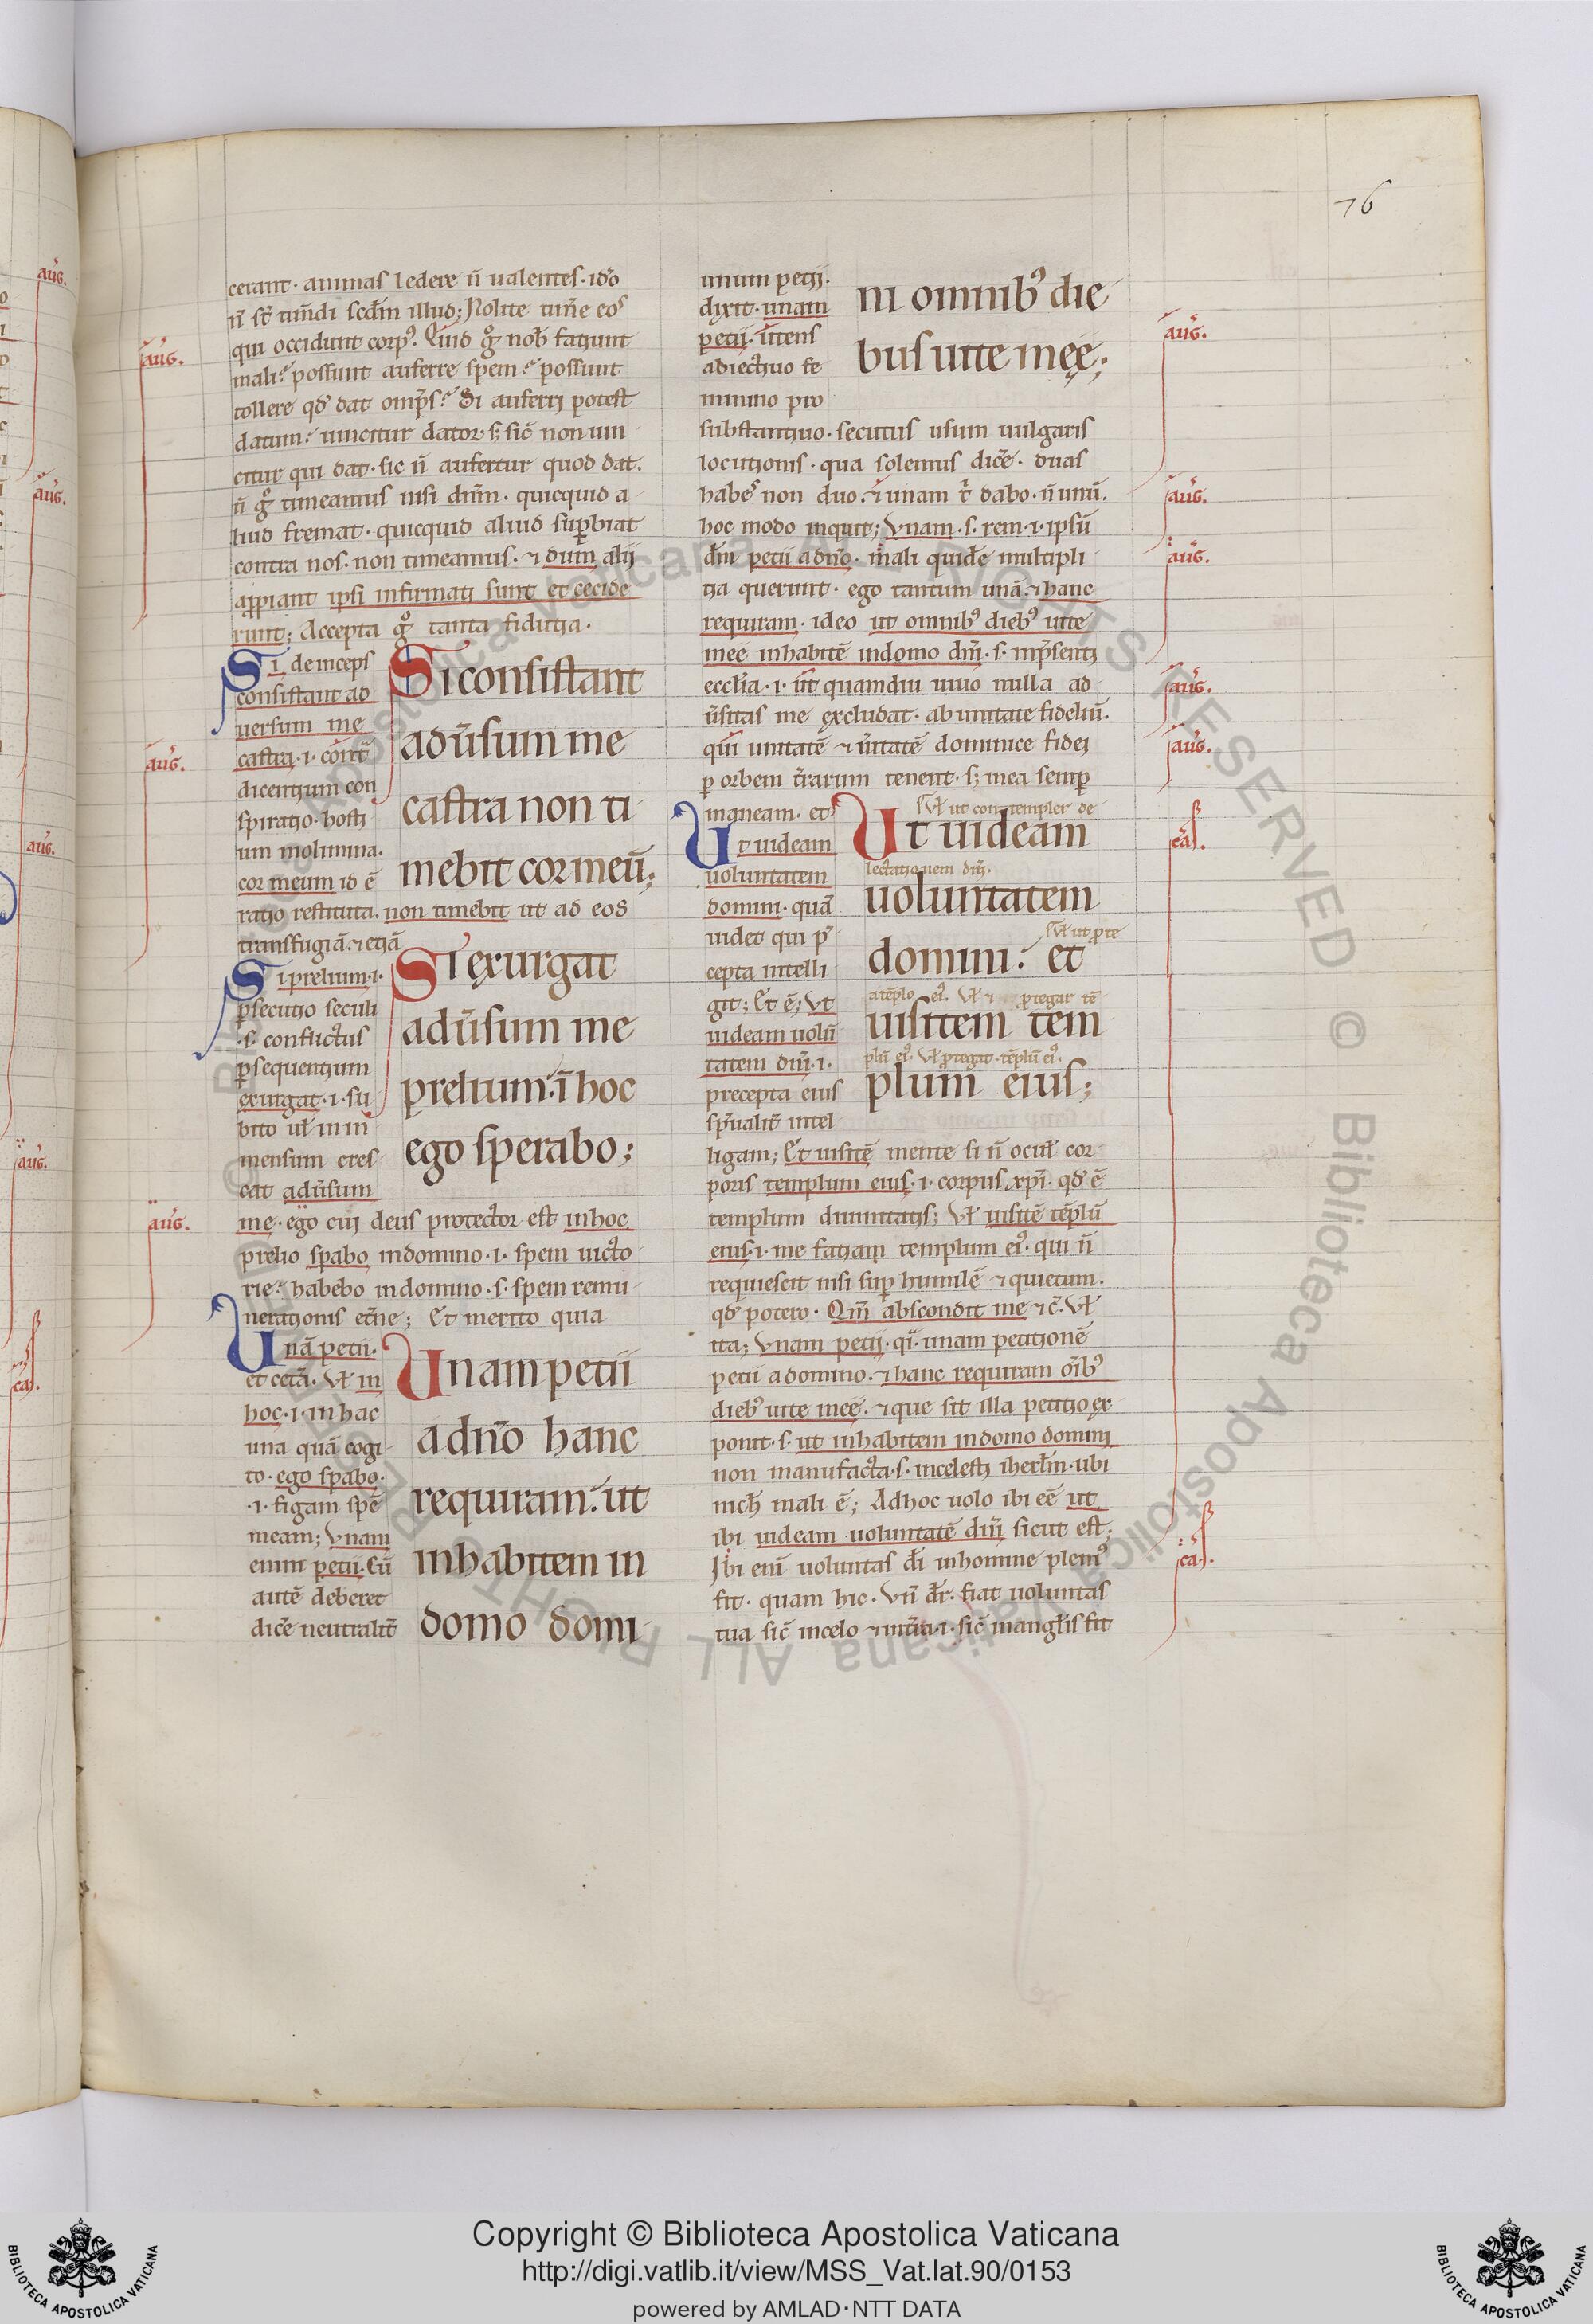 76
cerant. animas ledere n̄ ualentes. iđo
n̄ st̄ tim̄di scđm illud; Nolite tim̄e eos
qui occidunt corp⁹. Quid ḡ nob̄ faciunt
mali? possunt auferre spem? possunt
tollere qđ dat omp̄s? Si auferri potest
datum? uincitur dator. s; sic̄ non uin
citur qui dat. sic n̄ aufertur quod dat.
n̄ ḡ timeamus nisi dn̄m. quicquid a
liud fremat. quicquid aliud sup̄biat
contra nos. non timeamus. ⁊ dum alii
app̄iant ipsi infirmati sunt et cecide
runt; Accepta ḡ tanta fiducia.
Si deinceps
consistant ad
uersum me
castra .i. cont̄
dicentium con
spiratio. hosti
um molimina.
cor meum id ē
ratio restituta. non timebit ut ad eos
transfugiā. ⁊ etiā
Si prelium .i.
p̄secutio seculi
.s. conflictus
p̄sequentium
exurgat .i. su
bito ul̄ in in
mensum cres
cat adūsum
me. ego cui deus protector est in hoc
prelio sp̄abo in domino .i. spem uicto
rie? habebo in domino .s. spem remu
nerationis et̄ne; Et merito quia
Unā petii.
et cetā. Vl̄ in
hoc .i. in hac
una quā cogi
to. ego sp̄abo.
.i. figam spē
meam; Vnam
enim petii. Cū
autē deberet
dicē neutralit̄
Si consistant
adūsum me
castra non ti
mebit cor meū;
Si exurgat
adūsum me
prelium: ī hoc
ego sperabo;
Unam petii
a dn̄o hanc
requiram: ut
inhabitem in
domo domi
unum petii.
dixit. unam
petii. utens
adiectiuo fe
minino pro
substantiuo. secutus usum uulgaris
locutionis. qua solemus dicē. duas
habeo non duo. ⁊ unam t̄ dabo. n̄ unū.
hoc modo inquit; Vnam .s. rem .i. ipsū
dm̄ petii a dn̄o. mali quidē multipli
cia querunt. ego tantum unā. ⁊ hanc
requiram. ideo ut omnib⁹ dieb⁹ uite
mee inhabitē in domo dn̄i .s. in p̄senti
eccl̄ia .i. ut quamdiu uiuo nulla ad
ūsitas me excludat. ab unitate fideliū.
qui unitatē ⁊ ūitatē dominice fidei
p̄ orbem t̄rarum tenent. s; in ea semp̄
maneam. et
Ut uideam
uoluntatem
domini. quā
uidet qui p̄
cepta intelli
git; Et ē; Vt
uideam uolū
tatem dn̄i .i.
precepta eius
sp̄ualit̄ intel
ligam; Et uisitē mente si n̄ ocul̄ cor
poris templum eius .i. corpus xp̄i. qđ ē
templum diuinitatis; Vl̄ uisitē tēplū
eius .i. me faciam templum ei⁹. qui n̄
requiescit nisi sup̄ humilē ⁊ quietum.
qđ potero. Qm̄ abscondit me ⁊ c̄. Vl̄
ita; Vnam petii. q̄i. unam petitionē
petii a domino. ⁊ hanc requiram oīb⁹
dieb⁹ uite mee. ⁊ que sit illa petitio ex
ponit .s. ut inhabitem in domo domini
non manufacta .s. in celesti ihērlm. ubi
nich̄ mali ē; Ad hoc uolo ibi eē ut
ibi uideam uoluntatē dn̄i sicut est.
Ibi enī uoluntas dī in homine pleni⁹
fit. quam hic. Vn̄ dr̄. fiat uoluntas
tua sic̄ in celo ⁊ in t̄ra .i. sic̄ in angl̄is fit
ni omnib⁹ die
bus uite mee;
Vl̄ ut contempler de
Ut uideam
lectationem dn̄i.
uoluntatem
Vl̄ ut p̄te
domini: et
a tēplo ei⁹. Vl̄ ⁊ p̄tegar tē
uisitem tem
plū ei⁹. Vl̄ p̄tegat. tēplū ei⁹.
plum eius;
aug.
aug.
aug.
aug.
aug.
aug.
aug.
aug.
Copyright © Biblioteca Apostolica Vaticana
http://digi.vatlib.it/view/MSS_Vat.lat.90/0153
powered by AMLAD·NTT DATA
BIBLIOTECA APOSTOLICA VATICANA
BIBLIOTECA APOSTOLICA VATICANA
© Biblioteca Apostolica Vaticana ALL RIGHTS RESERVED